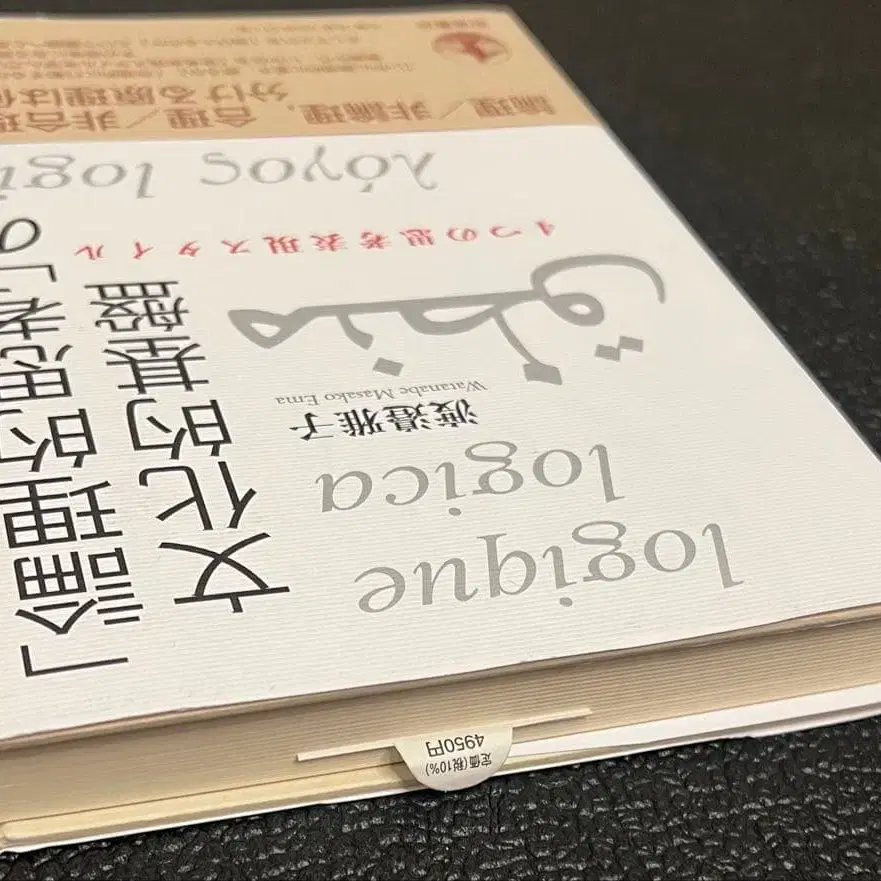 「論理的思考」の
文化的基盤
4つの思考表現スタイル
渡邉雅子
Watanabe Masako Ema
logique
logica
منطق
λόγος logi
論理／非論理、合理／非合理
分ける原理は何
定価(税10%)
4950円